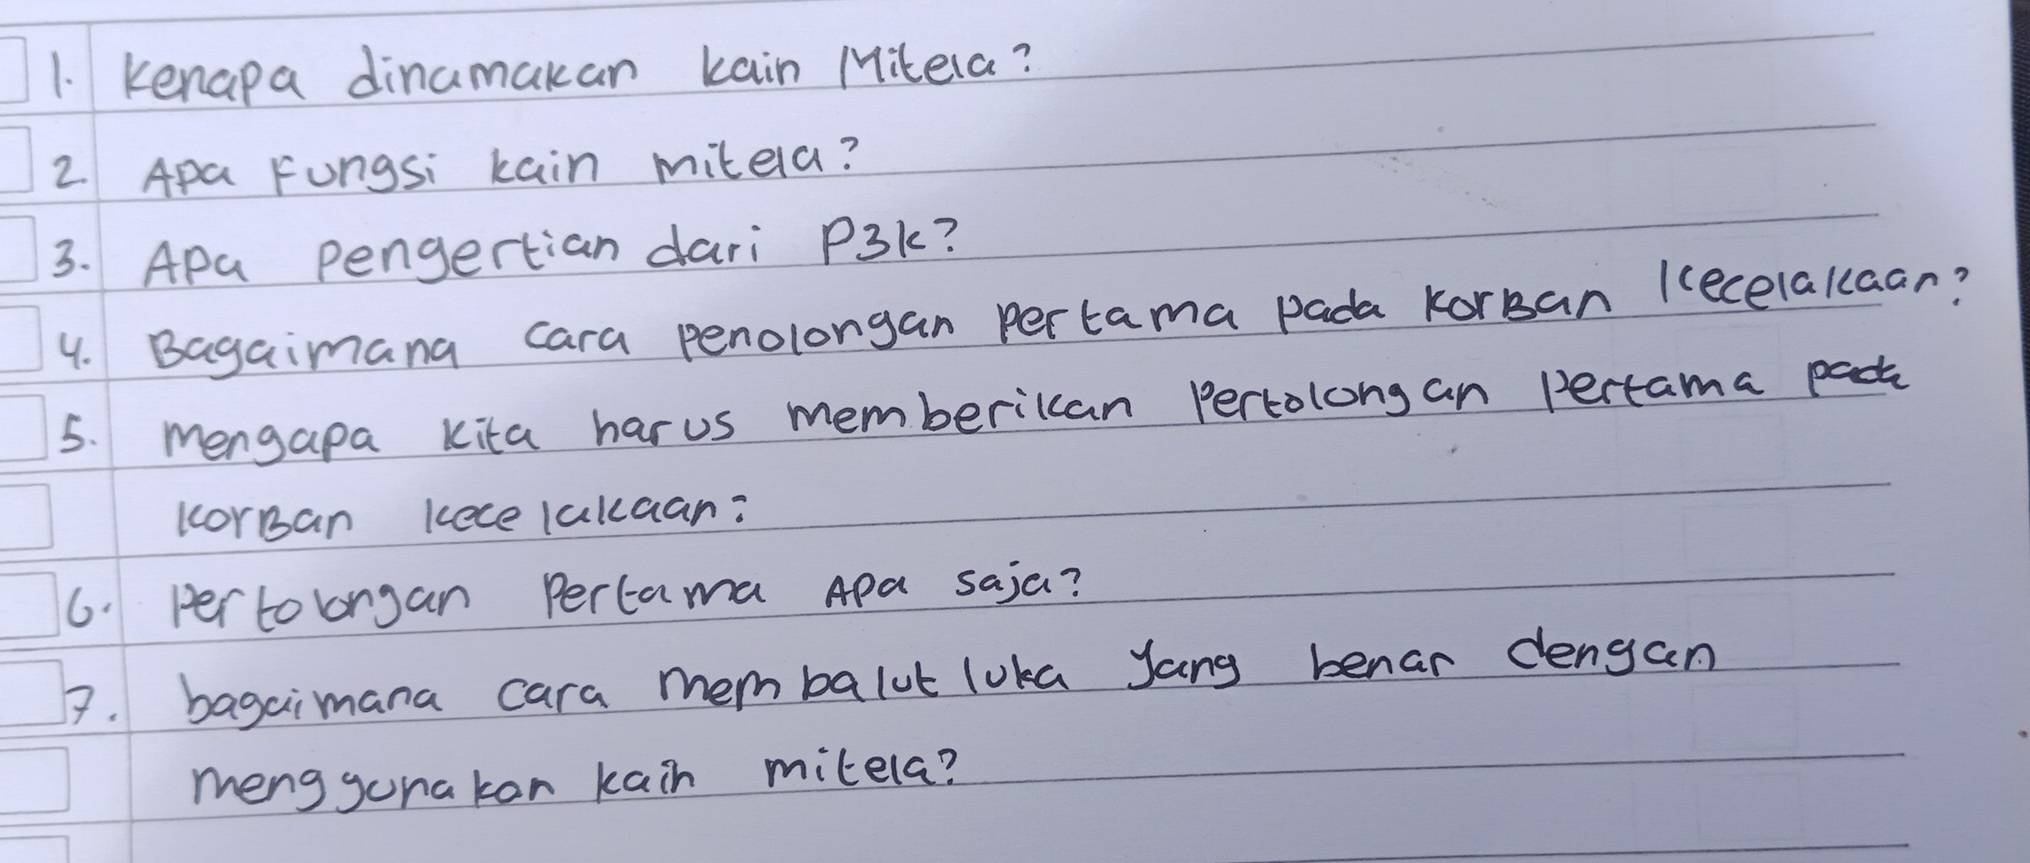 1. Kenapa dinamakan kain Mitela?
2. Apa Fungsi kain mitela?
3. Apa pengertian dari P3k?
4. Bagaimana cara penolongan pertama pada korban kecelakaan?
5. mengapa kita harus memberikan pertolongan pertama pada
korban kecelakaan?
6. Pertolongan Pertama Apa saja?
7. bagaimana cara membalut luka yang benar dengan
menggunakan kain mitela?